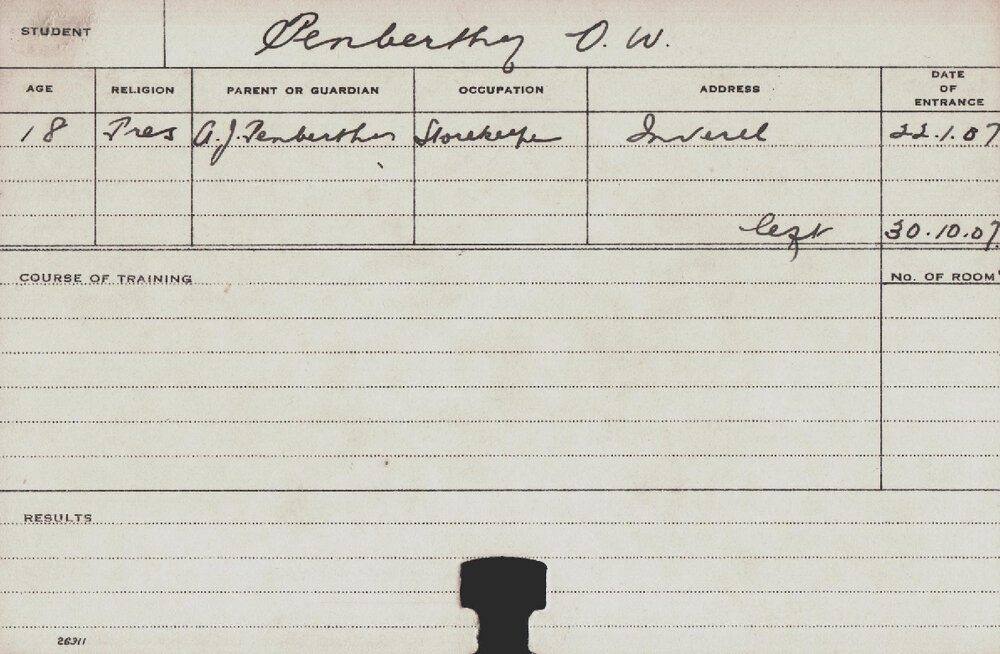 STUDENT Penberthy O. W.
AGE RELIGION PARENT OR GUARDIAN OCCUPATION ADDRESS DATE OF ENTRANCE
18 Pres A. J. Penberthy Storekeeper Inverell 22.1.07
left 30.10.07
COURSE OF TRAINING No. OF ROOM
RESULTS
26311